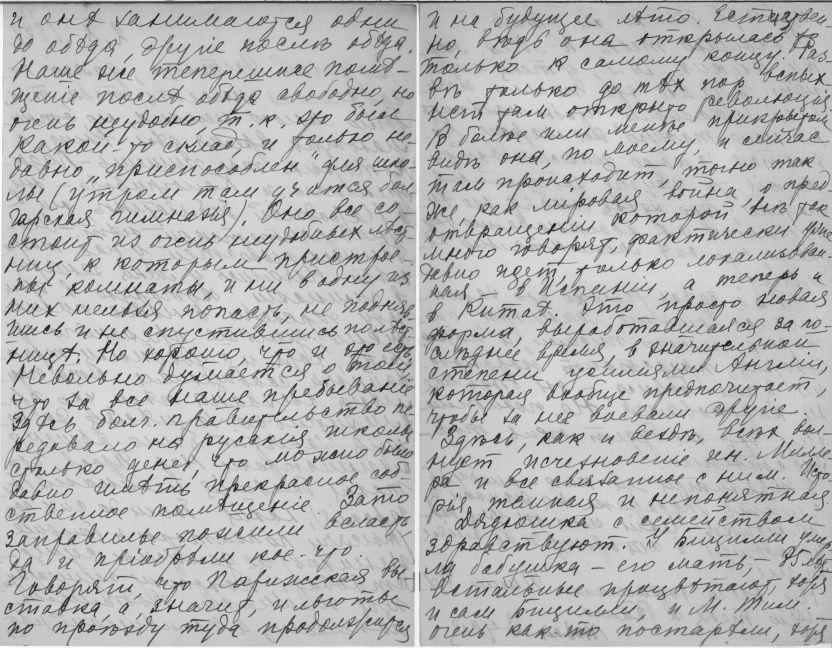 и онѣ занимаются одни
до обѣда, другіе послѣ обѣда.
Наше же теперешнее помѣ-
щеніе послѣ обѣда свободно, но
очень неудобно, т. к. это были
какой-то склад, и только не-
давно „приспособлен" для шко-
лы (утром там учится бол-
гарская гимназія). Оно все со-
стоит из очень неудобных лѣст-
ниц к которым пристрое-
ны комнаты, и ни в одну из
них нельзя попасть, не подняв-
шись и не спустившись по лѣст-
ницѣ. Но хорошо, что и это есть.
Невольно думается о том,
что за все наше пребываніе
здѣсь болг. правительство пе-
редавало на русскія школы
столько денег, что можно было
давно имѣть прекрасное соб-
ственное помѣщеніе. Зато
заправилы пожили всласть
да и пріобрѣли кое-что.
Говорят, что Парижская вы-
ставка, а, значит, и льготы
по проѣзду туда продолжится
и на будущее лѣто. Естествен-
но, вѣдь она открылась
только к самому концу. Раз-
вѣ только до тѣх пор вспых-
нет там открыто революція.
В болѣе или менѣе прикрытом
видѣ она, по моему, и сейчас
там происходит, точно так
же, как міровая война, о пред-
отвращеніи которой всѣ так
много говорят, фактически уже
давно идет, только локализован-
ная в Испаніи, а теперь и
в Китаѣ. Это просто новая
форма, выработавшаяся за по-
слѣднее время, в значительной
степени усиліями Англіи,
которая вообще предпочитает,
чтобы за нее воевали другіе.
Здѣсь, как и вездѣ, всѣх вол-
нует исчезновеніе ген. Милле-
ра и все связанное с ним. Исто-
рія темная и непонятная.
Дядюшка с семейством
здравствуют. У Бицилли умер-
ла бабушка – его мать, – 85 лѣт.
Остальные процвѣтают, хотя
и сам Бицилли, и М. Тим.
очень как то постарѣли, хотя